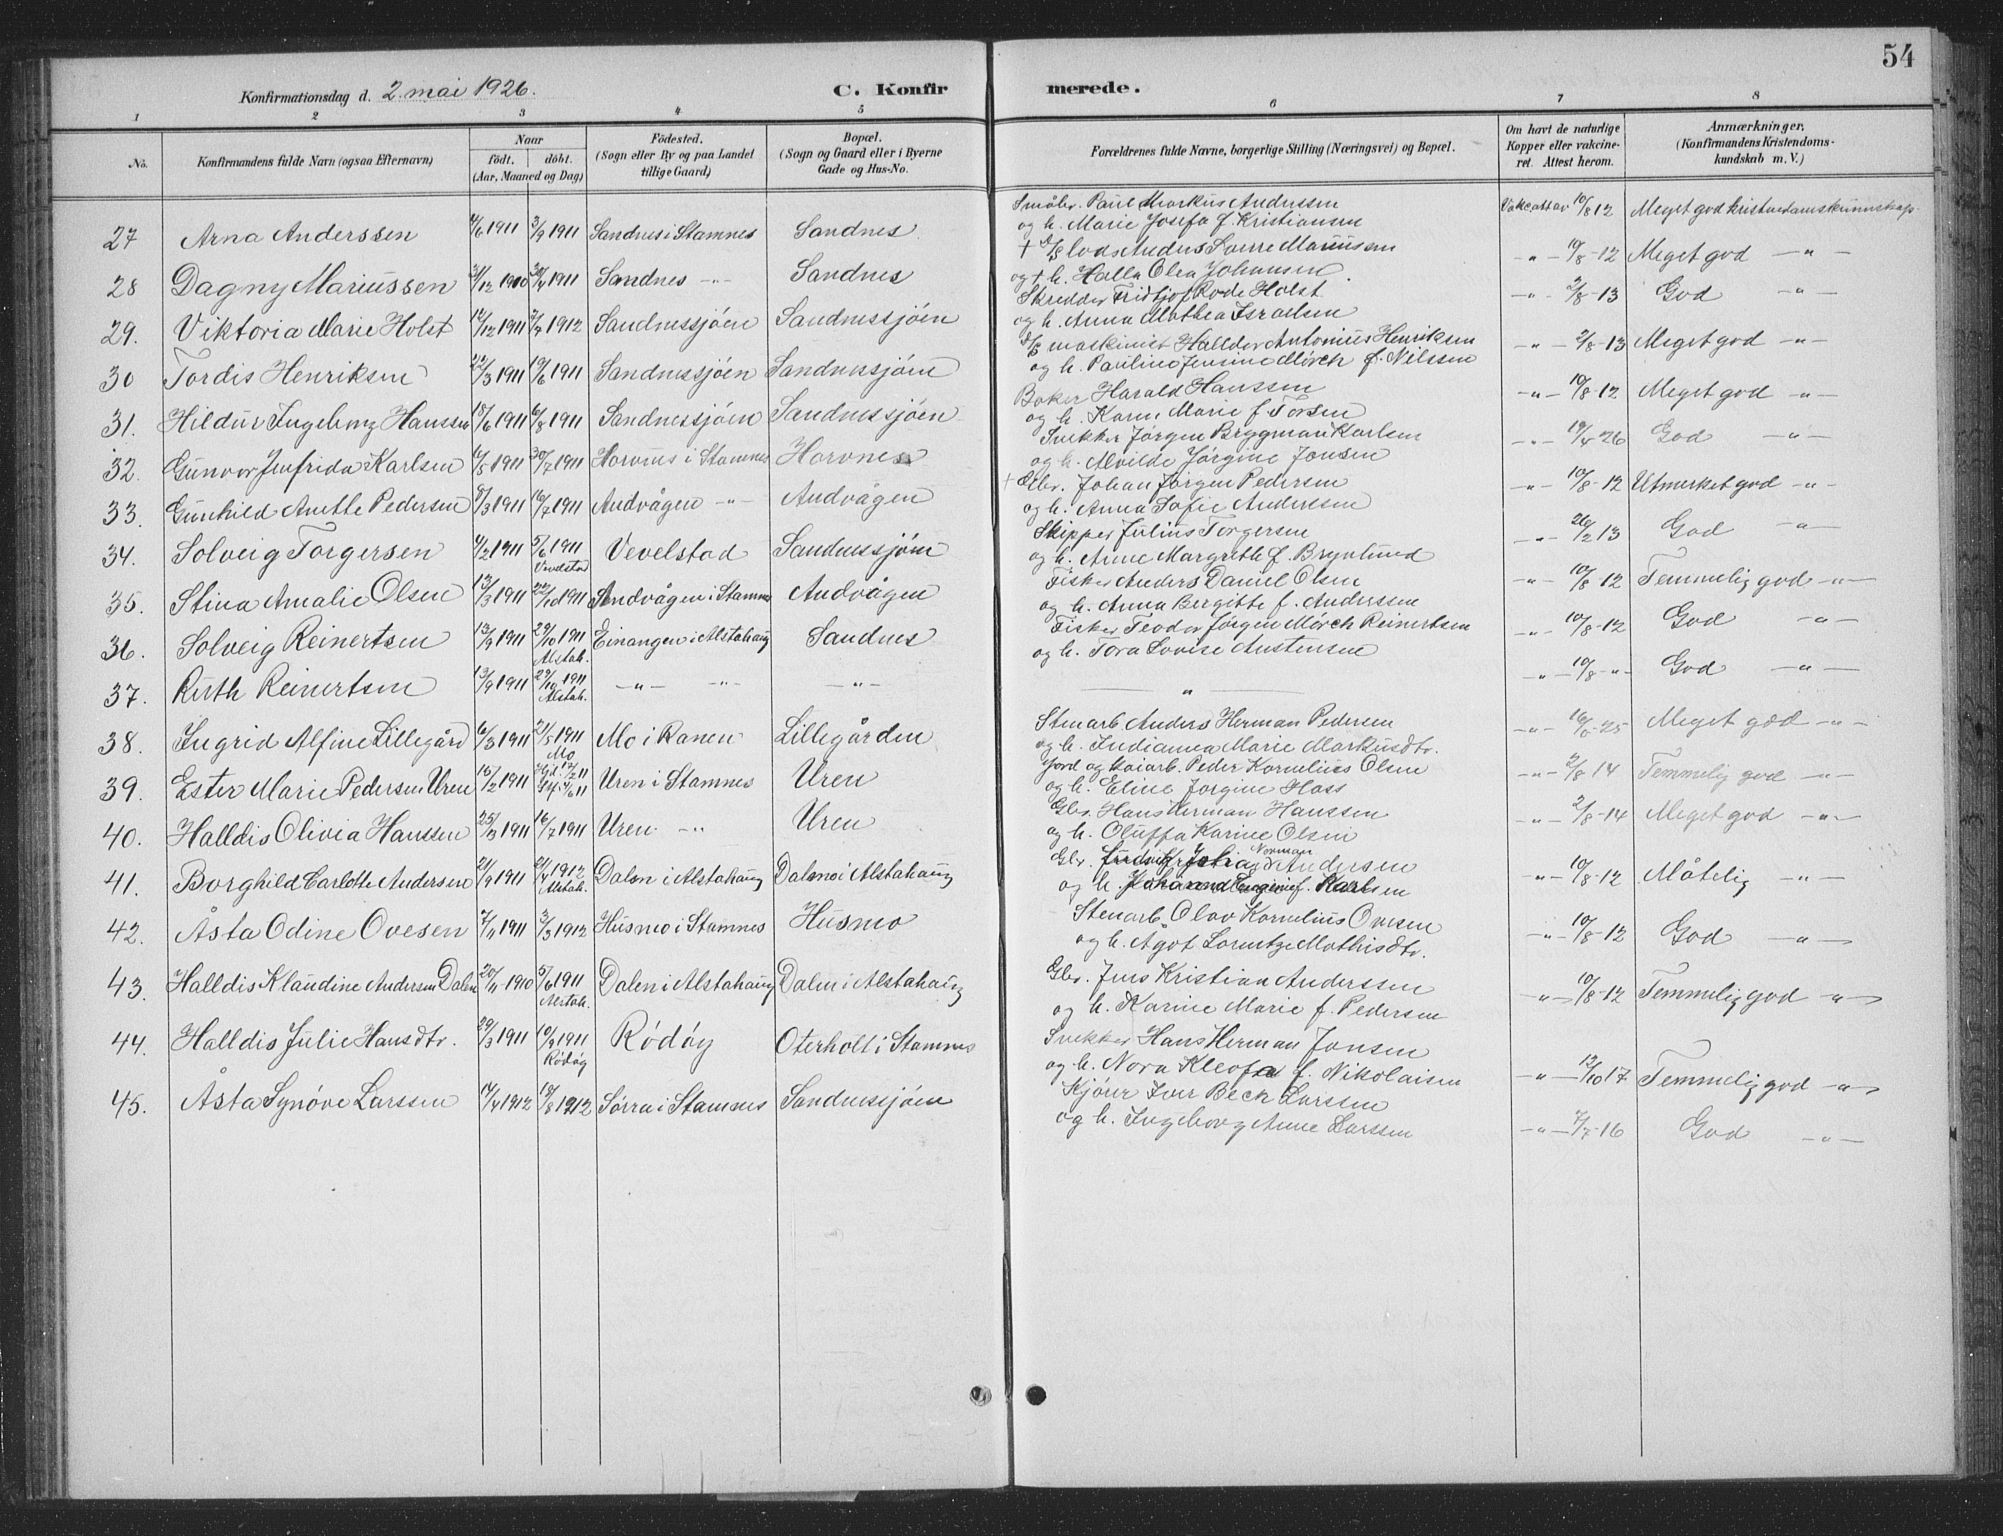 54
Konfirmationsdag d. 2. mai 1926. C. Konfirmerede.
1 2 3 4 5 6 7 8
No. Konfirmandens fulde Navn (ogsaa Efternavn) Naar födt. döbt. (Aar, Maaned og Dag) Födested. (Sogn eller By og paa Landet tillige Gaard) Bopæl. (Sogn og Gaard eller i Byerne Gade og Hus-No. Forældrenes fulde Navne, borgerlige Stilling (Næringsvei) og Bopæl. Om havt de naturlige Kopper eller vakcineret. Attest herom. Anmærkninger. (Konfirmandens Kristendomskundskab m. V.)
27 Arna Anderssen 4/6 1911 3/9 1911 Sandnes i Stamnes Sandnes Småbr. Paul Markus Anderssen
og h. Marie Josefa f. Kristiansen Vakc att av 10/8 12 Meget god kristendomskunnskap
28 Dagny Mariussen 31/12 1910 30/4 1911 Sandnes -"- Sandnes † Lods Anders Sverre Mariussen
og † h. Halla Olea Johansen -"- 10/8-12 Meget god -"-
29. Viktoria Marie Holst 12/12 1911 7/7 1912 Sandnessjöen Sandnessjöen Skredder Fridtjof Rode Holst
og h. Anna Mathea Israelsen -"- 2/8-13 God -"-
30 Tordis Henriksen 22/3 1911 19/6 1911 Sandnessjöen Sandnessjöen maskinist Halldor Antonius Henriksen
og h. Pauline Jensine Mörch f. Nilssen -"- 2/8-13 Meget god -"-
31. Hildur Ingeborg Hanssen 18/6 1911 6/8 1911 Sandnessjöen Sandnessjöen Baker Harald Hanssen
og h. Karen Marie f. Torsen -"- 10/8-12 Meget god -"-
32. Gunvor Jenfrida Karlsen 17/5 1911 30/7 1911 Horvnes i Stamnes Horvnes Snekker Jörgen Bryggman Karlsen
og h. Alvilde Jörgine Jonsen -"- 19/4 26 God -"-
33. Gunhild Anette Pedersen 8/3 1911 16/7 1911 Andvågen -"- Andvågen † Gbr. Johan Jörgen Pedersen
og h. Anna Sofie Anderssen -"- 10/8-12 Utmerket god -"-
34. Solveig Torgersen 4/2 1911 5/6 1911 Vevelstad Vevelstad Sandnessjöen Skipper Julius Torgersen
og h. Anne Margrethe f. Brynlund -"- 26/2 13 God -"-
35. Stina Amalie Olsen 13/3 1911 22/10 1911 Andvågen i Stamnes Andvågen Fisker Anders Daniel Olsen
og h. Anna Bergitte f. Anderssen -"- 10/8 12 Temmelig god -"-
36. Solveig Reinertsen 13/9 1911 29/10 1911 Alstah. Einangen i Alstahaug Sandnes Fisker Teodor Jörgen Mörch Reinertsen
og h. Tora Lovise Austensen -"- 10/8-12 God -"-
37. Ruth Reinertsen 13/9 1911 29/10 1911 Alstah. -"- -"- -"- -"- -"- 10/8-"- God -"-
38. Ingrid Alfine Lillegård 6/3 1911 21/5 1911 Mo Mo i Ranen Lillegården Stenarb Anders Herman Pedersen
og h. Indianna Marie Markusdtr. -"- 25 Meget god -"-
39. Ester Marie Pedersen Uren 15/2 1911 Uren i Stamnes Uren Jord og kaiarb. Peder Kornelius Olsen
og h. Eline Jörgine Hass -"- 2/8 14 Temmelig god -"-
40. Halldis Olivia Hanssen 25/3 1911 16/7 1911 Uren -"- Uren Gbr. Hans Herman Hanssen
og h. Oluffa Karine Olsen -"- 2/8-14 Meget god -"-
41. Borghild Carlotte Andersen 21/9 1911 21/4 1912 Alstah. Dalen i Alstahaug Dalen i Alstahaug Gbr. Norman Andersen
og h. Johanna f. Karlsen -"- 10/8-12 Måtelig -"-
42. Åsta Odine Ovesen 7/11 1911 3/3 1912 Husmo i Stamnes Husmo Stenarb Olav Kornelius Ovesen
og h. Ågot Lorentze Mathisdtr. -"- 10/8-12 God -"-
43. Halldis Klaudine Andersen Dalen 20/11 1910 5/6 1911 Alstah. Dalen i Alstahaug Dalen i Alstahaug Gbr. Jens Kristian Anderssen
og h. Karine Marie f. Pedersen -"- 10/8-12 Temmelig god -"-
44. Halldis Julie Hansdtr. 29/3 1911 10/9 1911 Rödöy Rödöy Oterholt i Stamnes Snekker Hans Herman Jonsen
og h. Nora Kleofa f. Nikolaisen -"- 13/10 17 Temmelig god -"-
45. Åsta Synöve Larssen 17/4 1912 18/8 1912 Sörra i Stamnes Sandnessjöen Kjörer Iver Bech Larssen
og h. Ingeborg Anne Larssen -"- 7/7-16 God -"-